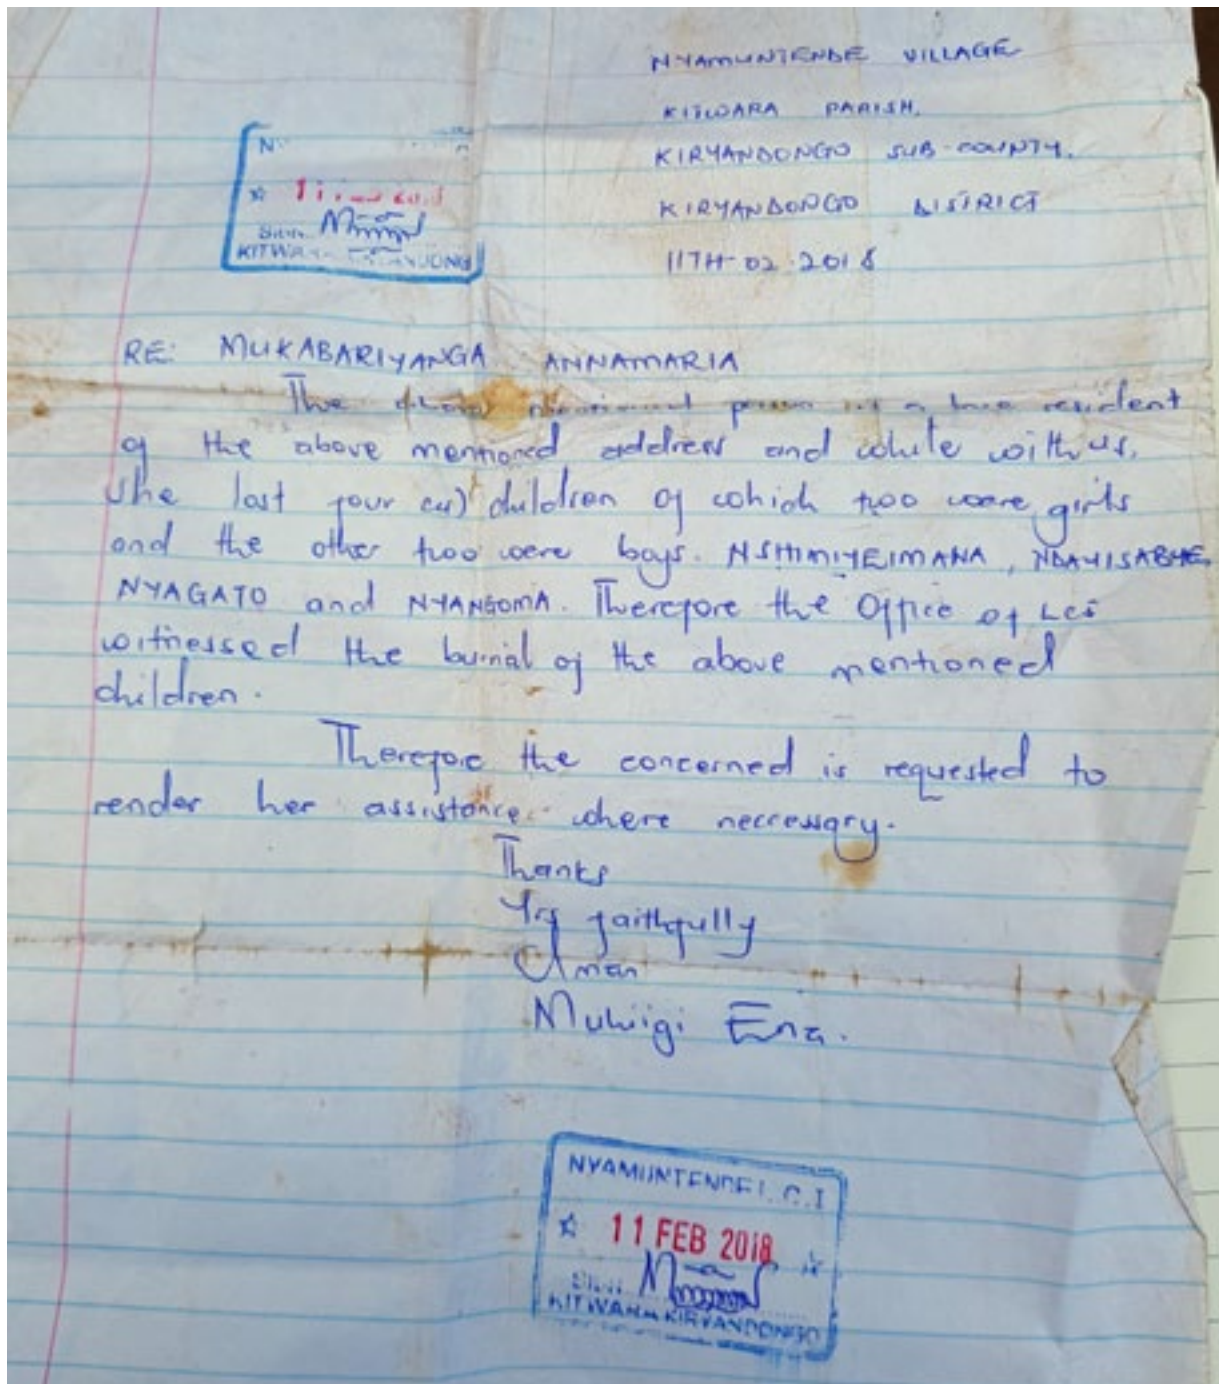 NYAMUNTENDE VILLAGE
KITWARA PARISH.
KIRYANDONGO SUB-COUNTY.
KIRYANDONGO DISTRICT
11TH-02-2018
N
KITWARA
RE: MUKABARIYANGA ANNAMARIA
The above mentioned person is a true resident
of the above mentioned address and while with us,
she last four (4) children of which two were girls
and the other two were boys. NSHIMIYEIMANA, NDAYISABHE,
NYAGATO and NYANGOMA. Therefore the Office of LCI
witnessed the burial of the above mentioned
children.
Therefore the concerned is requested to
render her assistance where neccessary.
Thanks
Yrs faithfully
NYAMUNTENDE L.C.I
11 FEB 2018
Sign
KITWARA KIRYANDONGO